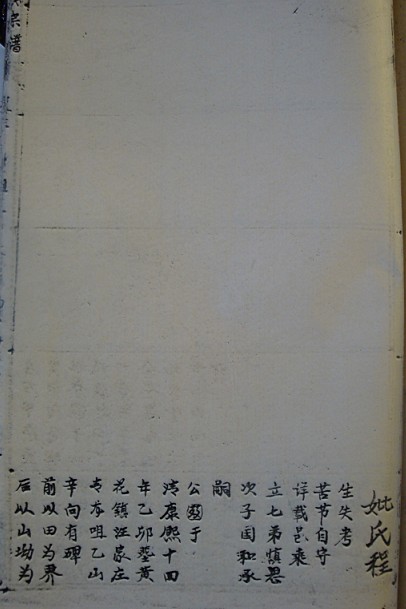 妣氏程
生失考
苦节自守
详载邑乘
立七弟慎思
次子国和承
嗣
公殁于
清康熙十四
年乙卯葬黄
花镇汪家庄
乙山
辛向有碑
前以田为界
后以山坳为